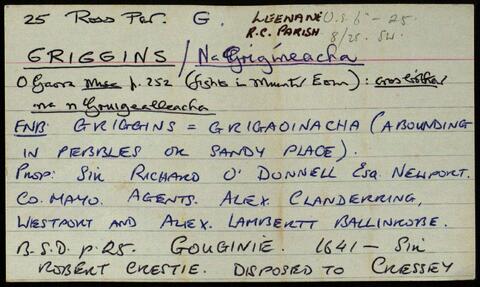 25 Ross Par. G. LEENANE O.S. 6" - 25.
R.C. PARISH 8/25. SW.
GRIGGINS / Na Grigíneacha
O Gaora Misc p. 252 (fights in Muintir Eoin):
na n
ENB: GRIGGINS = GRIGAOINACHA (ABOUNDING
IN PEBBLES OR SANDY PLACE).
PROP: SIR RICHARD O'DONNELL ESQ. NEWPORT.
CO. MAYO. AGENTS. ALEX. CLANDERRING,
WESTPORT AND ALEX. LAMBERTT BALLINROBE.
B.S.D. p. 25. GOUGINIE. 1641 - SIR
ROBERT CRESTIE. DISPOSED TO CRESSEY